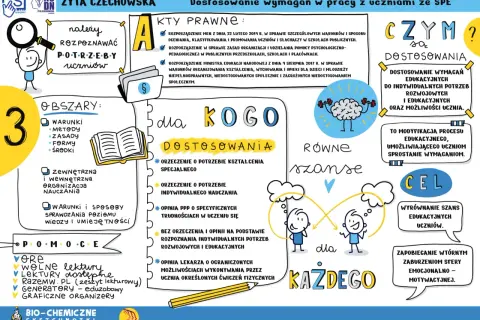 ZYTA CZECHOWSKA
Dostosowanie wymagań w pracy z uczniami ze SPE
należy
ROZPOZNAWAĆ
P·O·T·R·Z·E·B·Y
uczniów
AKTY PRAWNE:
ROZPORZĄDZENIE MEN Z DNIA 22 LUTEGO 2019 R. W SPRAWIE SZCZEGÓŁOWYCH WARUNKÓW I SPOSOBU
OCENIANIA, KLASYFIKOWANIA I PROMOWANIA UCZNIÓW I SŁUCHACZY W SZKOŁACH PUBLICZNYCH.
ROZPORZĄDZENIE W SPRAWIE ZASAD ORGANIZACJI I UDZIELANIA POMOCY PSYCHOLOGICZNO-
PEDAGOGICZNEJ W PUBLICZNYCH PRZEDSZKOLACH, SZKOŁACH I PLACÓWKACH.
ROZPORZĄDZENIE MINISTRA EDUKACJI NARODOWEJ Z DNIA 9 SIERPNIA 2017 R. W SPRAWIE
WARUNKÓW ORGANIZOWANIA KSZTAŁCENIA, WYCHOWANIA I OPIEKI DLA DZIECI I MŁODZIEŻY
NIEPEŁNOSPRAWNYCH, NIEDOSTOSOWANYCH SPOŁECZNIE I ZAGROŻONYCH NIEDOSTOSOWANIEM
SPOŁECZNYM.
CZYM ?
są
DOSTOSOWANIA
DOSTOSOWANIE WYMAGAŃ
EDUKACYJNYCH
DO INDYWIDUALNYCH POTRZEB
ROZWOJOWYCH
I EDUKACYJNYCH
ORAZ MOŻLIWOŚCI UCZNIA.
TO MODYFIKACJA PROCESU
EDUKACYJNEGO,
UMOŻLIWIAJĄCEGO UCZNIOM
SPROSTANIE WYMAGANIOM.
3
OBSZARY:
WARUNKI
- METODY
- ZASADY
- FORMY
- ŚRODKI
ZEWNĘTRZNA
I WEWNĘTRZNA
ORGANIZACJA
NAUCZANIA
WARUNKI I SPOSOBY
SPRAWDZANIA POZIOMU
WIEDZY I UMIEJĘTNOŚCI
§
dla KOGO
DOSTOSOWANIA
ORZECZENIE O POTRZEBIE KSZTAŁCENIA
SPECJALNEGO
ORZECZENIE O POTRZEBIE
INDYWIDUALNEGO NAUCZANIA
OPINIA PPP O SPECYFICZNYCH
TRUDNOŚCIACH W UCZENIU SIĘ
BEZ ORZECZENIA I OPINII NA PODSTAWIE
ROZPOZNANIA INDYWIDUALNYCH POTRZEB
ROZWOJOWYCH I EDUKACYJNYCH
OPINIA LEKARZA O OGRANICZONYCH
MOŻLIWOŚCIACH WYKONYWANIA PRZEZ
UCZNIA OKREŚLONYCH ĆWICZEŃ FIZYCZNYCH
RÓWNE
szanse
dla
KAŻDEGO
CEL
WYRÓWNANIE SZANS
EDUKACYJNYCH
UCZNIÓW.
ZAPOBIEGANIE WTÓRNYM
ZABURZENIOM SFERY
EMOCJONALNO -
MOTYWACYJNEJ.
P·O·M·O·C·E
ORE
WOLNE LEKTURY
LEKTURY dostępne
GENERATORY - eduzabawy
GRAFICZNE ORGANIZERY
BIO-CHEMICZNE